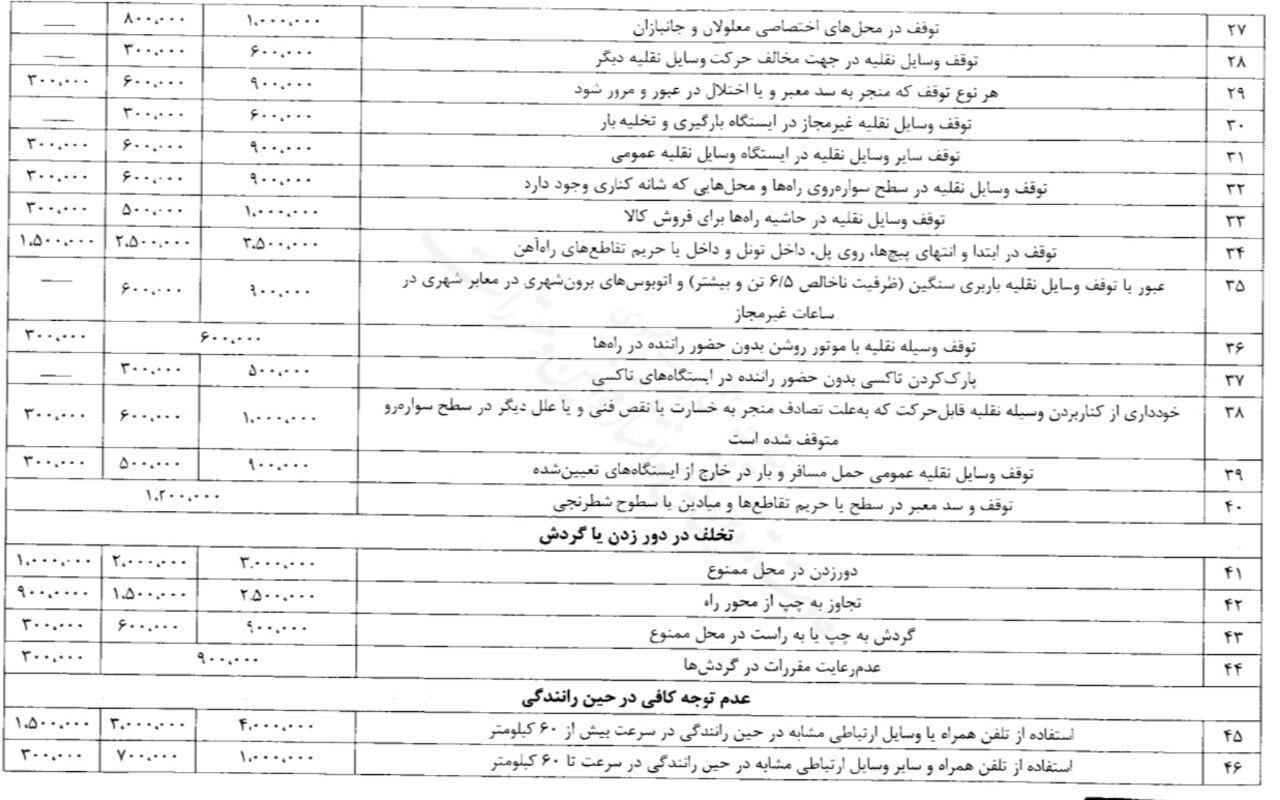 ۲۷ توقف در محل‌های اختصاصی معلولان و جانبازان ۱،۰۰۰،۰۰۰ ۸۰۰،۰۰۰ —
۲۸ توقف وسایل نقلیه در جهت مخالف حرکت وسایل نقلیه دیگر ۶۰۰،۰۰۰ ۳۰۰،۰۰۰ —
۲۹ هر نوع توقف که منجر به سد معبر و یا اختلال در عبور و مرور شود ۹۰۰،۰۰۰ ۶۰۰،۰۰۰ ۳۰۰،۰۰۰
۳۰ توقف وسایل نقلیه غیرمجاز در ایستگاه بارگیری و تخلیه بار ۶۰۰،۰۰۰ ۳۰۰،۰۰۰ —
۳۱ توقف سایر وسایل نقلیه در ایستگاه وسایل نقلیه عمومی ۹۰۰،۰۰۰ ۶۰۰،۰۰۰ ۳۰۰،۰۰۰
۳۲ توقف وسایل نقلیه در سطح سواره‌روی راه‌ها و محل‌هایی که شانه کناری وجود دارد ۹۰۰،۰۰۰ ۶۰۰،۰۰۰ ۳۰۰،۰۰۰
۳۳ توقف وسایل نقلیه در حاشیه راه‌ها برای فروش کالا ۱،۰۰۰،۰۰۰ ۵۰۰،۰۰۰ ۳۰۰،۰۰۰
۳۴ توقف در ابتدا و انتهای پیچ‌ها، روی پل، داخل تونل و داخل یا حریم تقاطع‌های راه‌آهن ۳،۵۰۰،۰۰۰ ۲،۵۰۰،۰۰۰ ۱،۵۰۰،۰۰۰
۳۵ عبور یا توقف وسایل نقلیه باربری سنگین (ظرفیت ناخالص ۶/۵ تن و بیشتر) و اتوبوس‌های برون‌شهری در معابر شهری در ۹۰۰،۰۰۰ ۶۰۰،۰۰۰ —
ساعات غیرمجاز
۳۶ توقف وسیله نقلیه با موتور روشن بدون حضور راننده در راه‌ها ۶۰۰،۰۰۰ ۳۰۰،۰۰۰
۳۷ پارک‌کردن تاکسی بدون حضور راننده در ایستگاه‌های تاکسی ۵۰۰،۰۰۰ ۳۰۰،۰۰۰ —
۳۸ خودداری از کناربردن وسیله نقلیه قابل‌حرکت که به‌علت تصادف منجر به خسارت یا نقص فنی و یا علل دیگر در سطح سواره‌رو ۱،۰۰۰،۰۰۰ ۶۰۰،۰۰۰ ۳۰۰،۰۰۰
متوقف شده است
۳۹ توقف وسایل نقلیه عمومی حمل مسافر و بار در خارج از ایستگاه‌های تعیین‌شده ۹۰۰،۰۰۰ ۵۰۰،۰۰۰ ۳۰۰،۰۰۰
۴۰ توقف و سد معبر در سطح یا حریم تقاطع‌ها و میادین یا سطوح شطرنجی ۱،۲۰۰،۰۰۰
تخلف در دور زدن یا گردش
۴۱ دورزدن در محل ممنوع ۳،۰۰۰،۰۰۰ ۲،۰۰۰،۰۰۰ ۱،۰۰۰،۰۰۰
۴۲ تجاوز به چپ از محور راه ۲،۵۰۰،۰۰۰ ۱،۵۰۰،۰۰۰ ۹۰۰،۰۰۰۰
۴۳ گردش به چپ یا به راست در محل ممنوع ۹۰۰،۰۰۰ ۶۰۰،۰۰۰ ۳۰۰،۰۰۰
۴۴ عدم‌رعایت مقررات در گردش‌ها ۹۰۰،۰۰۰ ۳۰۰،۰۰۰
عدم توجه کافی در حین رانندگی
۴۵ استفاده از تلفن همراه یا وسایل ارتباطی مشابه در حین رانندگی در سرعت بیش از ۶۰ کیلومتر ۴،۰۰۰،۰۰۰ ۳،۰۰۰،۰۰۰ ۱،۵۰۰،۰۰۰
۴۶ استفاده از تلفن همراه و سایر وسایل ارتباطی مشابه در حین رانندگی در سرعت تا ۶۰ کیلومتر ۱،۰۰۰،۰۰۰ ۷۰۰،۰۰۰ ۳۰۰،۰۰۰